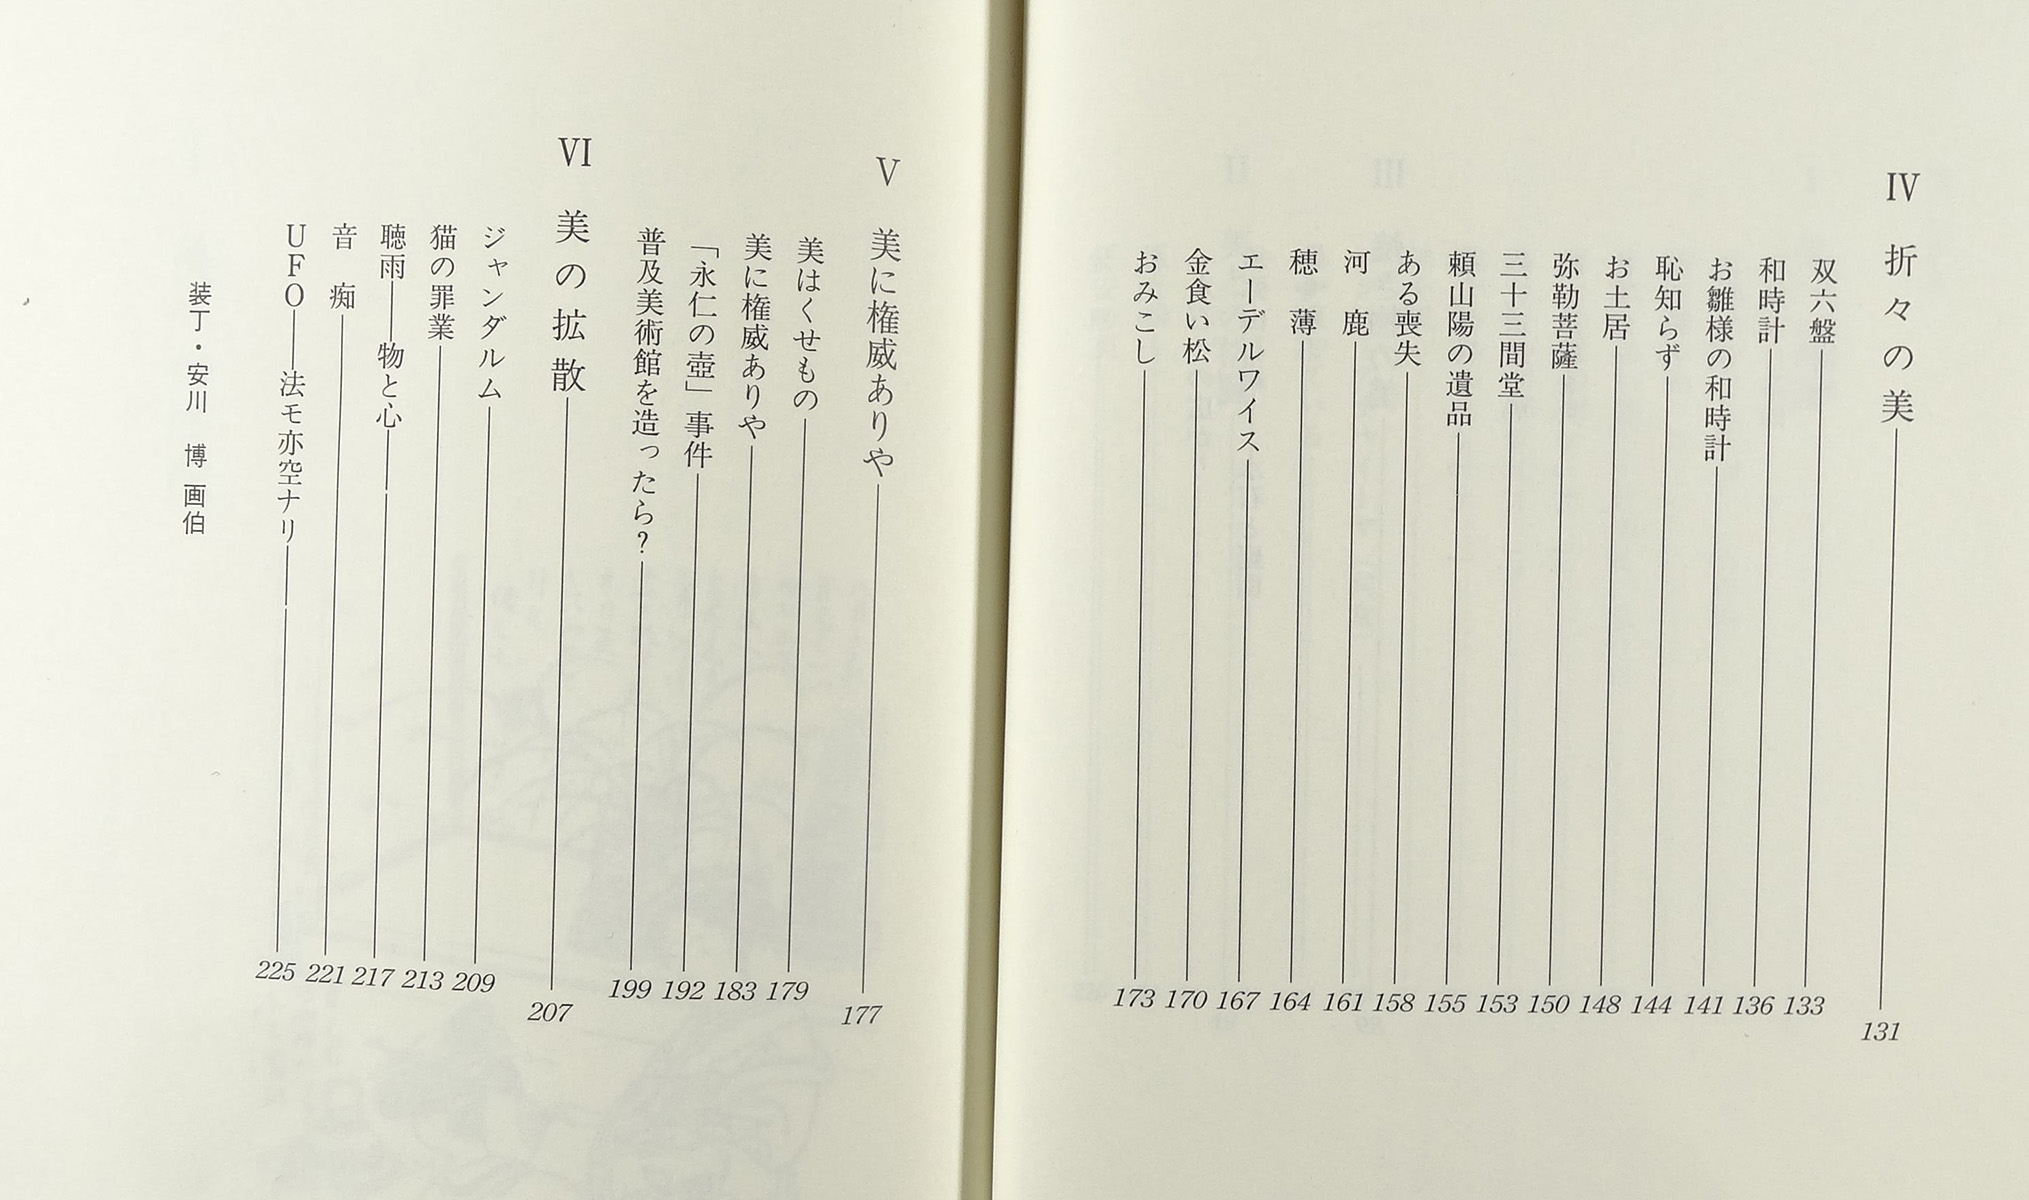 IV 折々の美 131
双六盤 133
和時計 136
お雛様の和時計 141
恥知らず 144
お土居 148
弥勒菩薩 150
三十三間堂 153
頼山陽の遺品 155
ある喪失 158
河 鹿 161
穂 薄 164
エーデルワイス 167
金食い松 170
おみこし 173
V 美に権威ありや 177
美はくせもの 179
美に権威ありや 183
「永仁の壺」事件 192
普及美術館を造ったら? 199
VI 美の拡散 207
ジャンダルム 209
猫の罪業 213
聴雨――物と心―― 217
音 痴 221
UFO――法モ亦空ナリ―― 225
装丁・安川 博 画伯